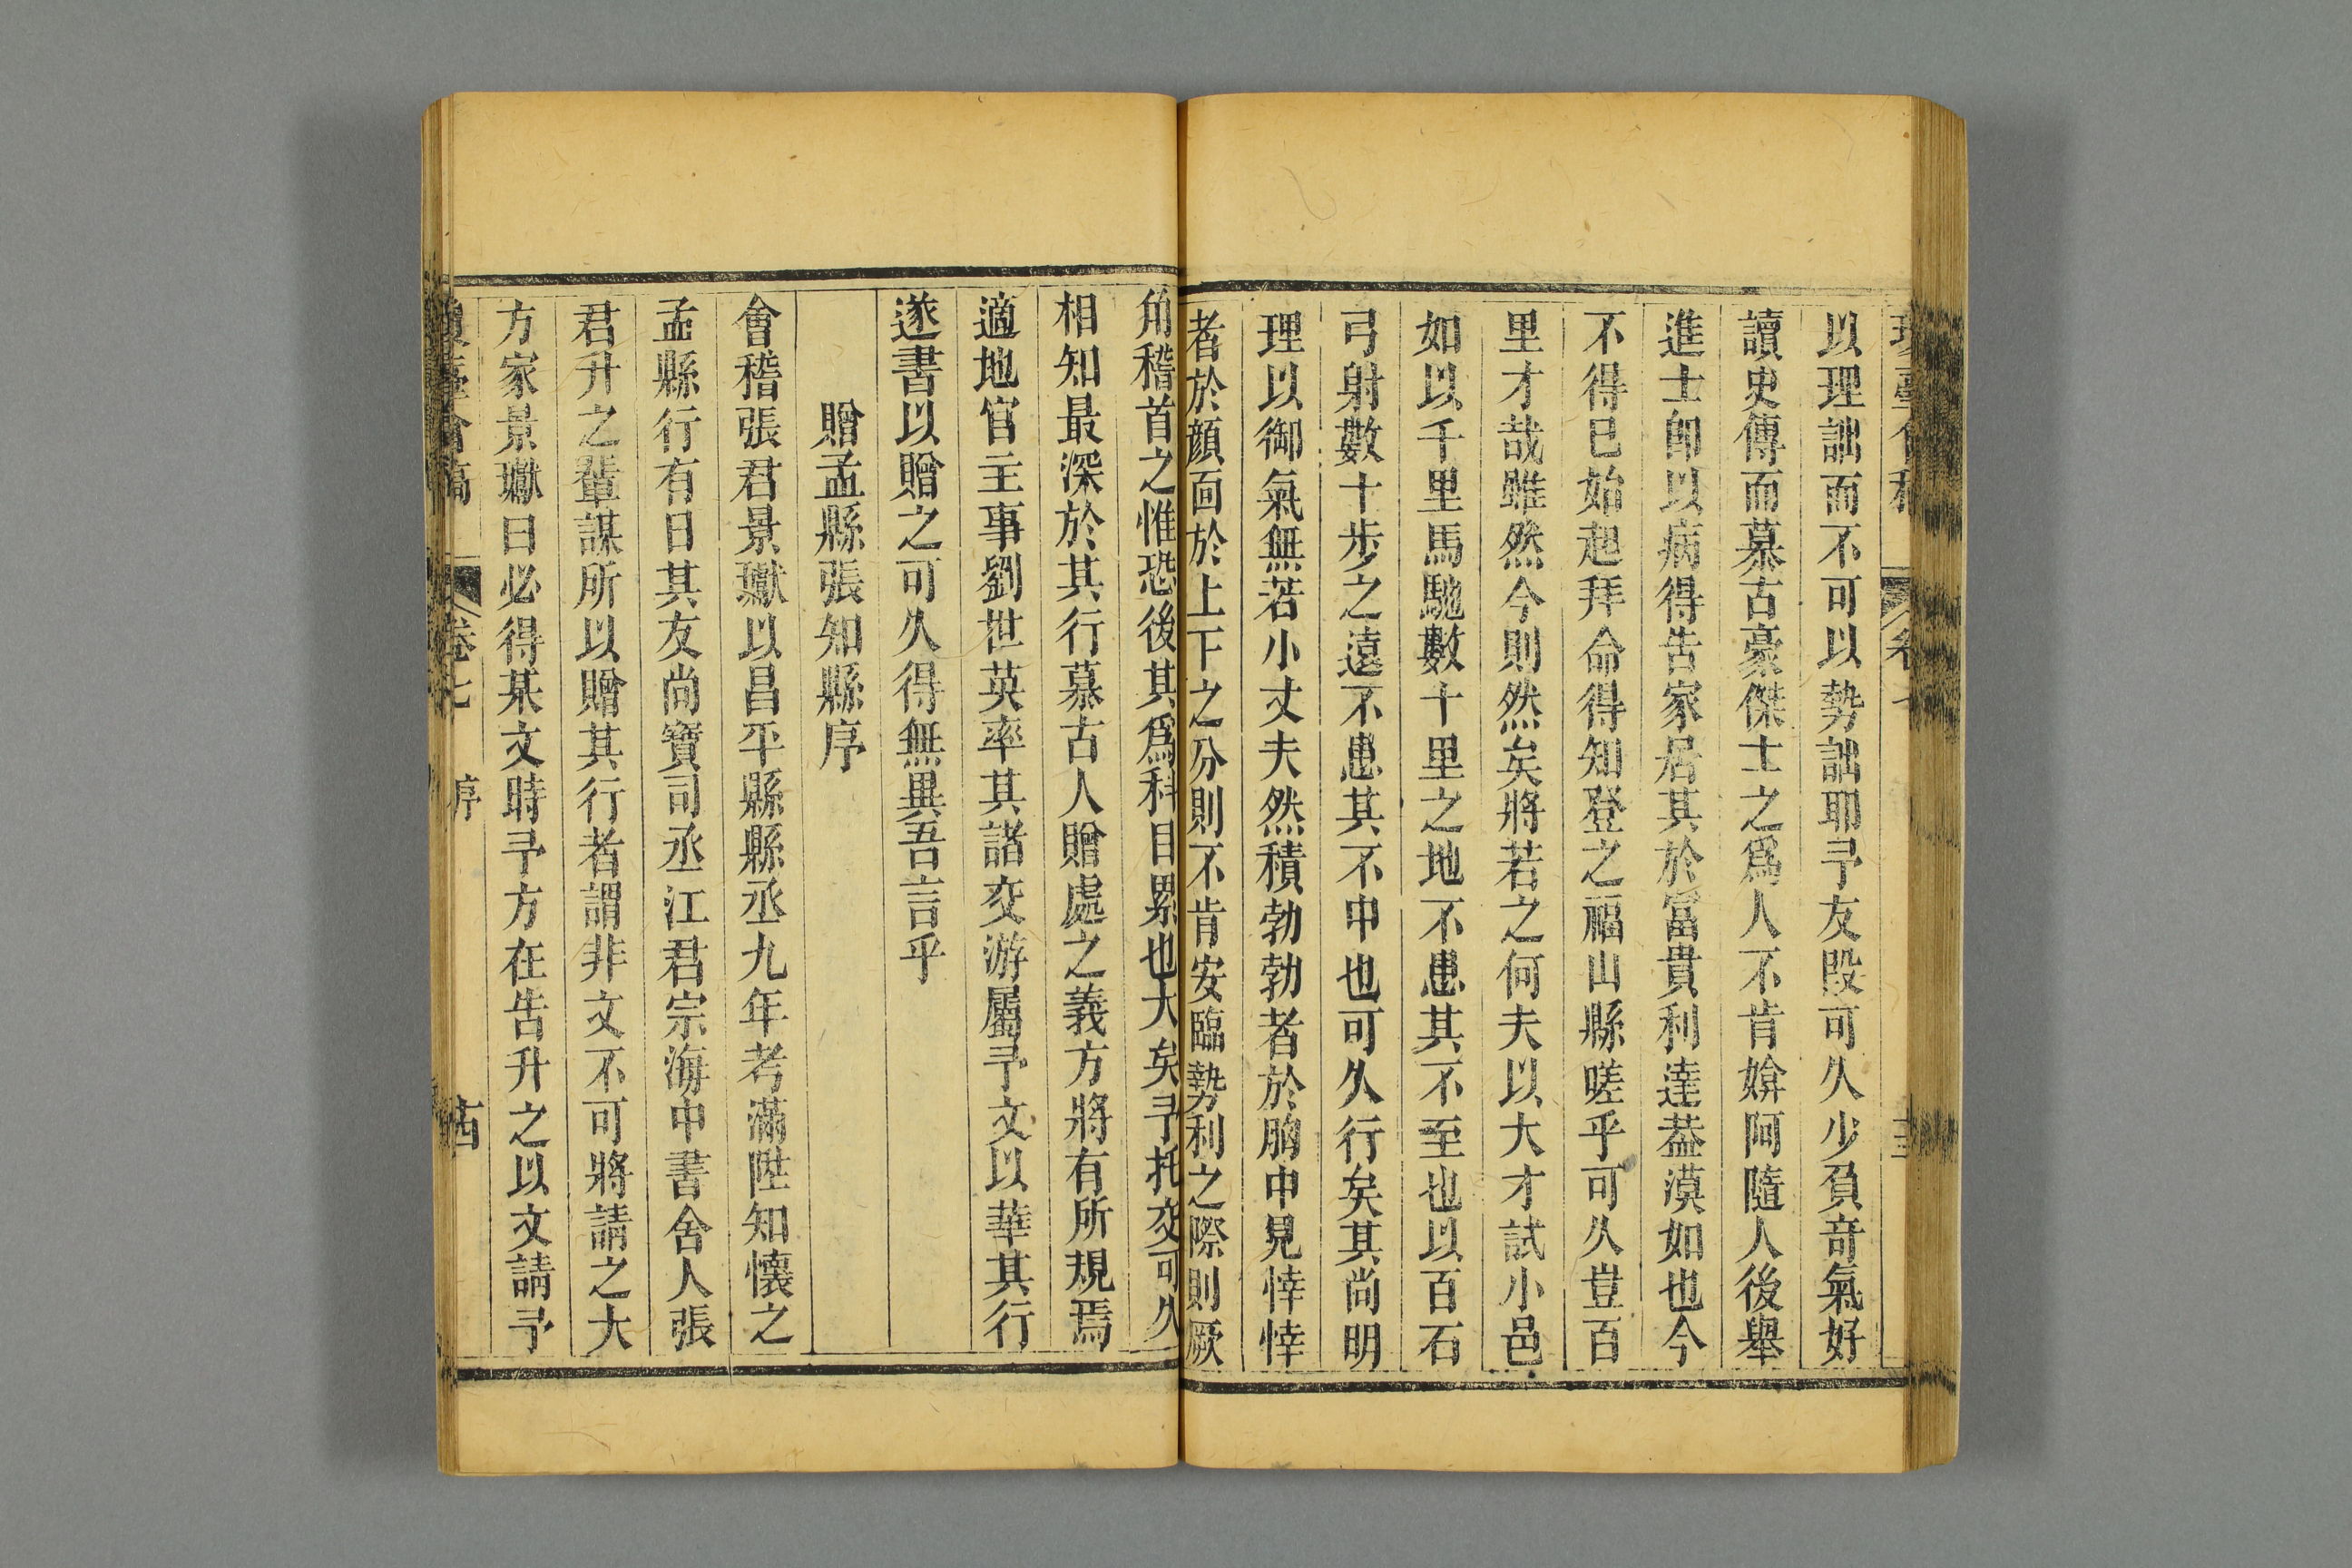 以理詘而不可以勢詘耶予友段可久少負奇氣好
讀史傳而慕古豪傑士之爲人不肯媕阿隨人後舉
進士卽以病得告家居其於富貴利達葢漠如也今
不得已始起拜命得知登之福山縣嗟乎可久豈百
里才哉雖然今則然矣將若之何夫以大才試小邑
如以千里馬馳數十里之地不患其不至也以百石
弓射數十步之遠不患其不中也可久行矣其尚明
理以御氣無若小丈夫然積勃勃者於胸中見悻悻
者於顔面於上下之分則不肯安臨勢利之際則厥
角稽首之惟恐後其爲科目累也大矣予托交可久
相知最深於其行慕古人贈處之義方將有所規焉
適地官主事劉世英率其諸交游屬予文以華其行
遂書以贈之可久得無異吾言乎
贈孟縣張知縣序
會稽張君景瓛以昌平縣縣丞九年考滿陞知懷之
孟縣行有日其友尚寶司丞江君宗海中書舍人張
君升之輩謀所以贈其行者謂非文不可將請之大
方家景瓛曰必得某文時予方在告升之以文請予
卷七
序